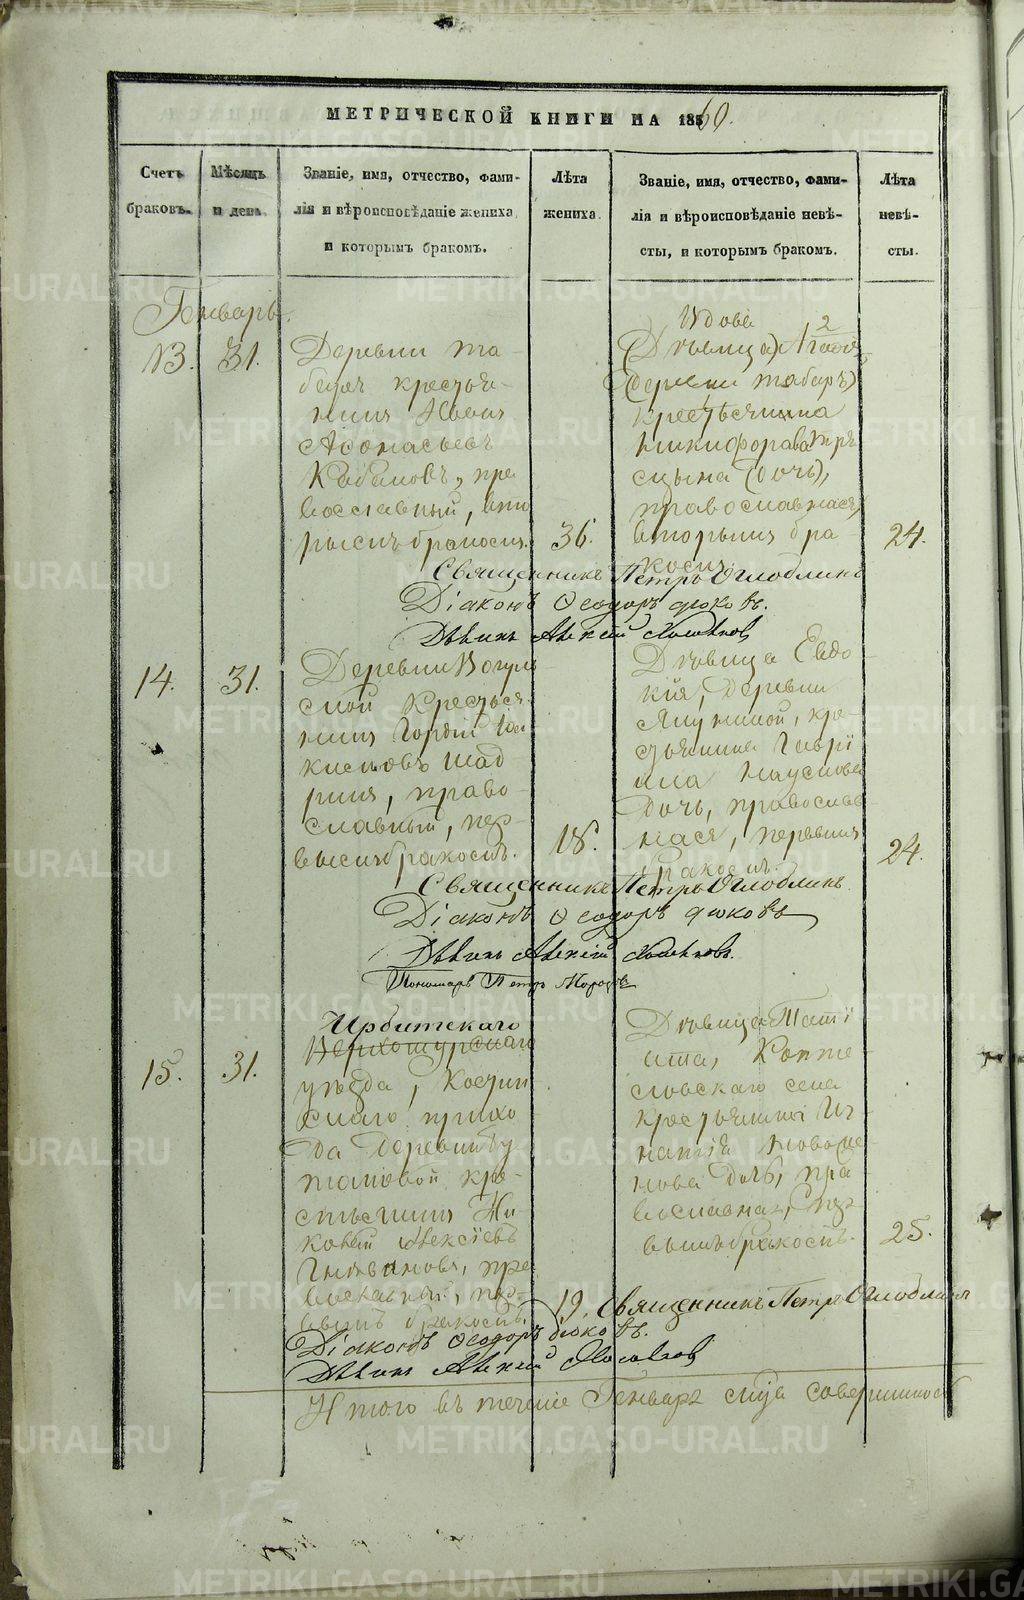 МЕТРИЧЕСКОЙ КНИГИ НА 1860.
Счетъ браковъ.
Мѣсяцъ и день.
Званіе, имя, отчество, фами-
лія и вѣроисповѣданіе жениха
и которымъ бракомъ.
Лѣта жениха.
Званіе, имя, отчество, фами-
лія и вѣроисповѣданіе невѣ-
сты, и которымъ бракомъ.
Лѣта невѣ-
сты.
Генварь.
13.
31.
Деревни Та-
баръ крестья-
нинъ
Афонасьевъ
Кабановъ, пра
вославный, вто
рымъ бракомъ.
36.
Вдова
2
(Дѣвица) Агафія
(деревни Табаръ)
крестьянина
Никифора
сына (дочь),
православная,
вторымъ бра-
комъ
24.
Священникъ Петръ Оглоблинъ
Діаконъ Ѳеодоръ Дюковъ.
Дьячекъ Алексій
14.
31.
Деревни Вогуль
ской крестья
нинъ Гордій
Шад
ринъ, право-
славный, пер-
вымъ бракомъ.
18.
Дѣвица Евдо-
кія, деревни
кре-
стьянина Гаврі
ила Наумова
дочь, православ-
ная, первымъ
бракомъ.
24.
Священникъ Петръ Оглоблинъ
Діаконъ Ѳеодоръ Дюковъ
Дьячекъ Алексій
Пономарь Петръ
Ирбитскаго
Верхотурскаго
15.
31.
уѣзда,
скаго прихо
да деревни Бу
лановой кре-
стьянинъ Ни
колай Алексіевъ
пра
вославный, пер-
вымъ бракомъ.
19.
Дѣвица Таті
ана, Копте
ловскаго села
крестьянина Иг
натія
дочь, пра
вославная, пер
вымъ бракомъ.
25.
Священникъ Петръ Оглоблинъ
Діаконъ Ѳеодоръ Дюковъ.
Дьячекъ Алексій
Итого въ теченіе Генваря совершилось
METRIKI.GASO-URAL.RU